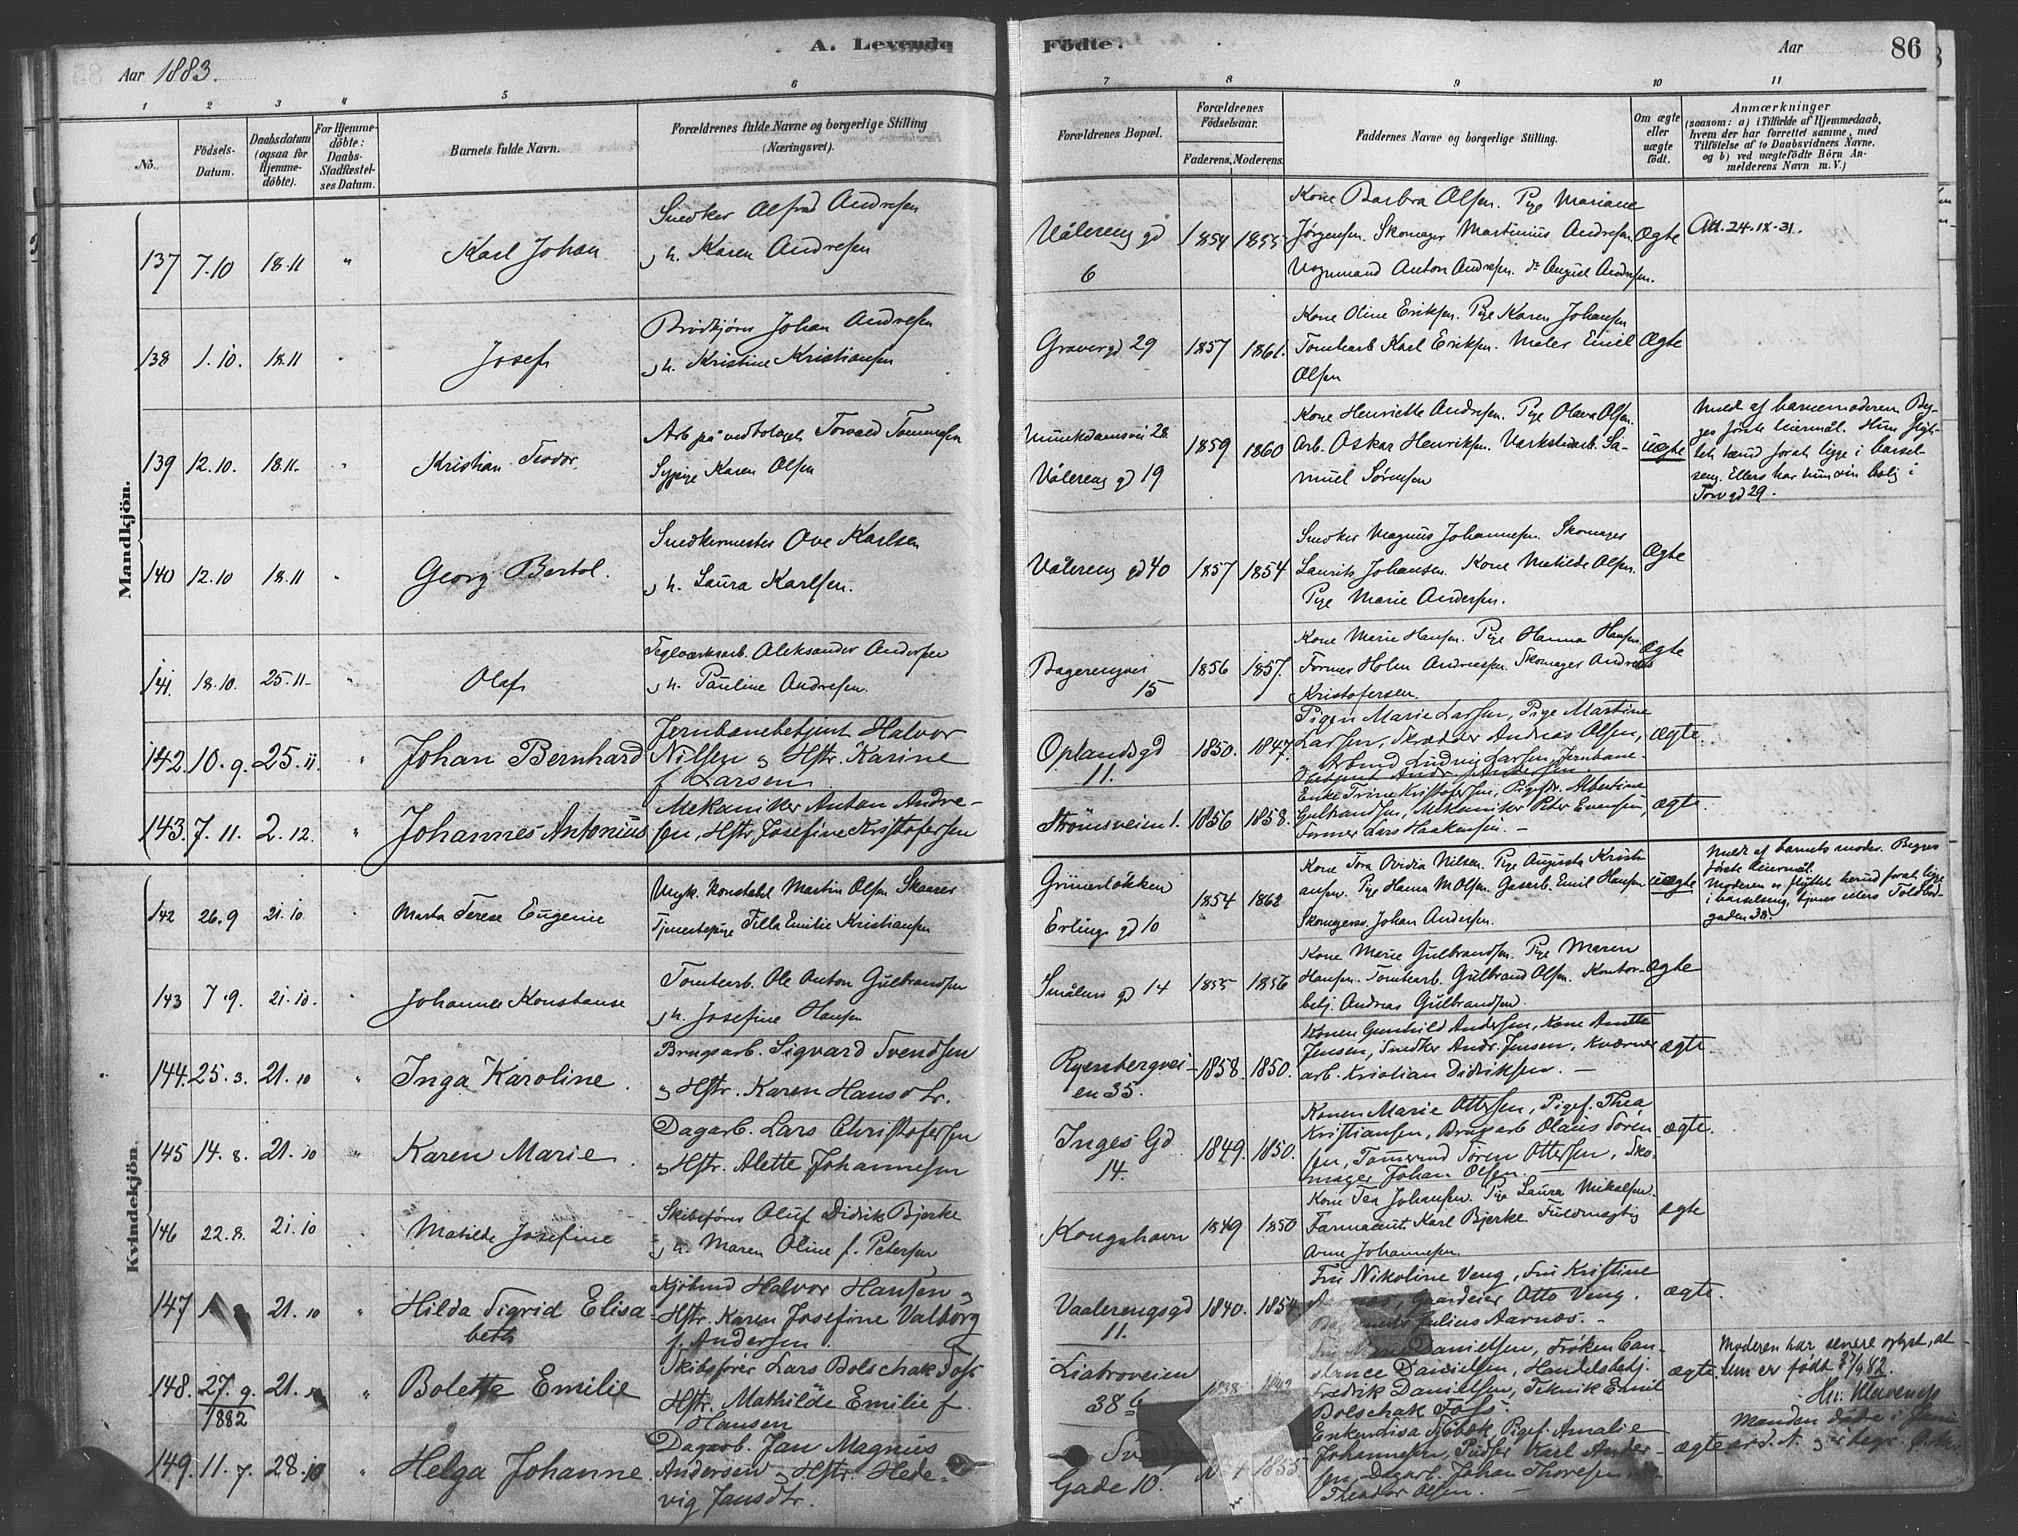 A. Levende Födte.
Aar 1883.
Aar
86
1 2 3 4 5 6 7 8 9 10 11
No.
Födsels-Datum.
Daabsdatum (ogsaa for Hjemme-döbte).
For Hjemme-döbte: Daabs-Stadfæstel-ses Datum.
Barnets fulde Navn.
Forældrenes fulde Navne og borgerlige Stilling (Næringsvei).
Forældrenes Bopæl.
Forældrenes Födselsaar.
Faderens. Moderens.
Faddernes Navne og borgerlige Stilling.
Om ægte eller uægte födt.
Anmærkninger
(saasom: a) i Tilfælde af Hjemmedaab, hvem der har forrettet samme, med Tilföielse af to Daabsvidners Navne, og b) ved uægtefödte Börn An-melderens Navn m. V.)
Mandkjön.
137 7.10 18.11 " Karl Johan
Snedker Alfred Andresen
h. Karen Andresen
Vålereng gd
6
1854 1855
Kone Barbra Olsen. Pige Mariane
Jørgensen. Skomager Martinius Andresen
Vognmand Anton Andresen. dr August Andresen.
Ægte
Att. 24-IX-31.
138 1.10. 18.11 " Josef
Brødkjører Johan Andresen
h. Kristine Kristiansen
Gravergd 29
1857 1861.
Kone Oline Eriksen. Pige Karen Johansen
Tomtearb Karl Eriksen. Maler Emil
Olsen
Ægte
139 12.10. 18.11. " Kristian Teodor
Arb på vedbolaget Torvald Tommesen
Sypige Karen Olsen
Munkdamsvei 28
Vålereng gd 19
1859 1860
Kone Henriette Andresen. Pige Olava Olsen.
Arb. Oskar Henriksen. Verkstedarb. Sa-
muel Sørensen
uægte
Meldt af barnemoderen Beg-
ges første leiermål. Hun flyt-
tet herud forat ligge i barsel-
seng. Ellers har hun sin bolig i
Torvgd 29.
140 12.10 18.11 " Georg Bertol.
Snedkermester Ove Karlsen
h. Laura Karlsen.
Vålereng gd 40
1857 1854
Snedker Magnus Johannesen. Skomager
Laurits Johansen. Kone Matilde Olsen.
Pige Marie Andersen.
Ægte
141. 18.10. 25.11- " Olaf
Teglværksarb. Aleksander Andersen
h. Pauline Andresen.
Bagerengvei
15
1856 1857.
Kone Marie Hansen. Pige Hanna Hansen.
Former Holm Andreassen. Skomager Andreas
Kristofersen.
Ægte
142. 10.9. 25.11. " Johan Bernhard
Jernbanebetjent Halvor
Nilsen og Hstr. Karine
f. Larsen
Oplandsgd
11.
1850. 1847.
Pigen Marie Larsen, Pige Martine
Larsen, Skrædder Andreas Olsen,
Ludvig Larsen, Jernbane-
betjent Andr. Andersen
ægte.
143. 7.11. 2.12. " Johannes Antonius
Mekaniker Anton Andre-
sen, Hstr. Josefine Kristofersen
Strömsveien 1.
1856 1858.
Enke Trine Kristofersen, Pigestr. Albertine
Gulbrandsen, Mekaniker Peter Evensen,
Former Lars Haakensen. —
ægte.
Kvindekjön.
142 26.9 21.10. " Marta Terese Eugenie
Ungk. konstabl Martin Olsen Skaarer
Tjenestepige Tilla Emilie Kristiansen
Grünerløkken
Erlings gd 10
1854 1862
Kone Tora Ovidia Nilsen. Pige Augusta Kristi-
ansen. Pige Hanna M Olsen. Gasarb. Emil Hansen
Skomagersv. Johan Andersen.
uægte
Meldt af barnets moder. Begges
første leiermål.
Moderen er flyttet herud forat ligge
i barselseng, tjener ellers Toldbod-
gaden 38.
143 7.9. 21.10. " Johanne Konstanse
Tomtearb. Ole Anton Gulbrandsen
h. Josefine Hansen
Smålens gd 14
1855 1856
Kone Marie Gulbrandsen. Pige Maren
Hansen. Tomtearb. Gulbrand Olsen. Kontor-
betj. Andreas Gulbrandsen.
ægte
144. 25.3. 21.10 " Inga Karoline.
Brugsarb. Sigvard Svendsen
og Hstr. Karen Hansdtr.
Ryenbergvei-
en 35.
1858. 1850.
Konen Gunhild Andersen, Kone Anette
Jensen, Snedker Andr. Jensen, Kværner
arb. Kristian Didriksen. —
ægte.
145 14.8. 21.10 " Karen Marie.
Dagarb. Lars Christofersen
og Hstr. Alette Johannesen
Inges Gd
14.
1849. 1850.
Konen Marie Ottersen, Pigef. Thea
Kristiansen, Brugsarb Olaus Sören
sen, Tømmermd Sören Ottersen, Sko-
mager Johan Olsen. —
ægte.
146 22.8. 21.10 Matilde Josefine
Skibsfører Oluf Didrik Bjerke
h. Maren Oline f. Petersen
Kongshavn
1849 1850
Kone Tea Johansen. Pige Laura Mikalsen.
Farmaceut Karl Bjerke. Fuldmægtig
Arne Johannesen.
ægte
147 21.10 " Hilda Sigrid Elisa
beth
Kjöbmd Halvor Hansen og
Hstr. Karen Josefine Valborg
f. Andersen.
Vaalerengsgd
11.
1840. 1854.
Fru Nikoline Veng, Fru Kristine
Aarnæs, Gaardeier Otto Veng.
Julius Aarnæs. —
ægte.
148. 27.9. 1882 21. " Bolette Emilie
Skibsfører Lars Bolschak Fos
Hstr. Mathilde Emilie f.
Hansen
Liabroveien
38 b
1838 1842
Danielsen, Fröken Con-
stance Danielsen, Handelsbetj.
Fredrik Danielsen, Teknik Emil
Bolschak Fos.
ægte.
Moderen har senere oplyst, at
hun er født 27/9 82.
149. 11.7. 28.10 " Helga Johanne
Dagarb. Jan Magnus
Andersen og Hstr. Hede-
vig Jansdtr.
Gade 10.
1855.
Enken Lisa Sjöbök, Pigef. Amalie
Johannesen, Pudser Karl Ander-
sen, Dagarb. Johan Thoresen,
Theodor Olsen. —
ægte
Manden døde i